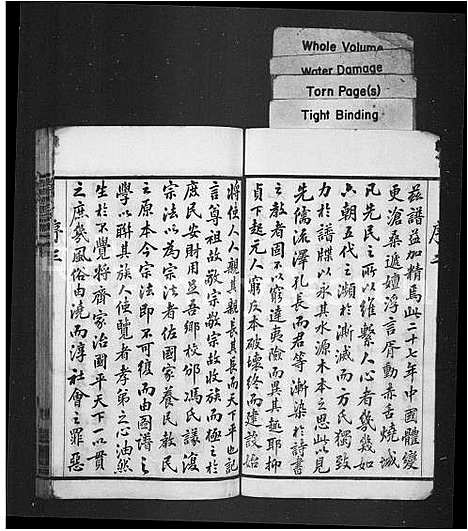 Whole Volume
Water Damage
Torn Page(s)
Tight Binding
序二
茲譜益加精焉此二十七年中國體變
更滄桑遞嬗浮言胥動赤舌燒城
凡先民之所以維繫人心者幾幾如
六朝五代之瀕於漸滅而万氏獨致
力於譜牒以永其水源木本之思此以見
先儒流澤孔長而君等漸染於詩書
之教者固不以窮達夷險而異其趣耶抑
貞下起元人窮反本破壞終而建設始
將使人人親其親長其長而天下平也記
言尊祖故敬宗敬宗故收族而極之於
庶民安財用足吾鄉校邠馮氏議復
宗法以為宗法者佐國家養民教民
之原本今宗法即不可復而由圖譜之
學以聯其族人使覽者孝弟之心油然
生於不覺將齊家治國平天下一以貫
之庶幾風俗由澆而淳社會之罪惡
序三